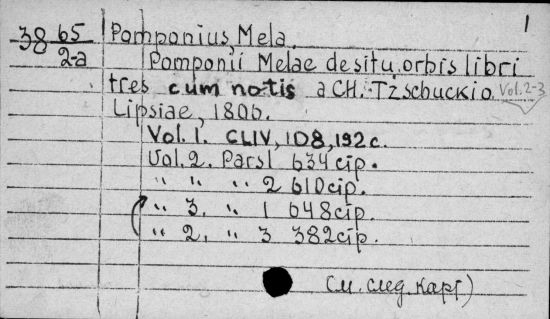 1
38 65
2-a
Pomponius, Mela.
Pomponii Melae de situ orbis libri
tres cum notis a CH. Tzschuckio Vol. 2-3
Lipsiae, 1806.
Vol. 1. CLIV, 108, 192 c.
Vol. 2. Pars 1 634 cip.
" " " 2 610 cip.
" 3. " 1 648 cip.
" 2, " 3 382 cip.
(см. след. карт)